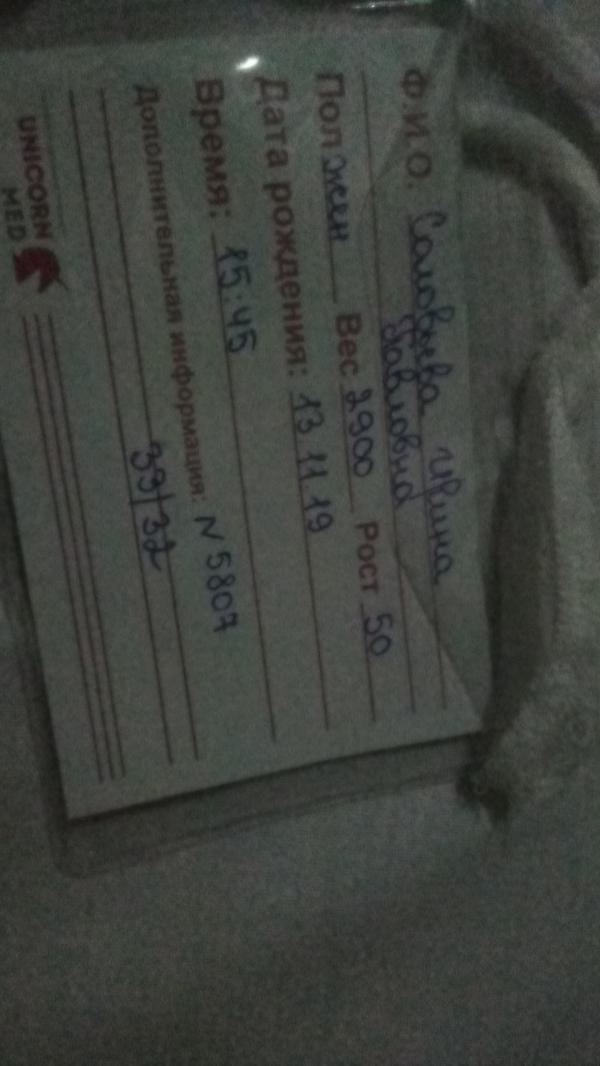 Ф.И.О. Соловьева Ирина
Павловна
Пол жен Вес 2900 Рост 50
Дата рождения: 13.11.19
Время: 15:45
Дополнительная информация: N 5807
33/32
UNICORN
MED